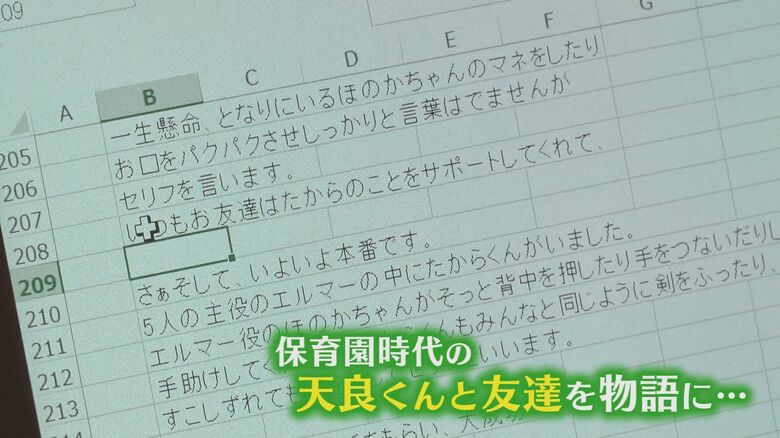 09
A B C D E F G
205 一生懸命、となりにいるほのかちゃんのマネをしたり
206 お口をパクパクさせしっかりと言葉はでませんが
207 セリフを言います。
208 いつもお友達はたからのことをサポートしてくれて、
209
210 さぁそして、いよいよ本番です。
211 5人の主役のエルマーの中にたからくんがいました。
212 エルマー役のほのかちゃんがそっと背中を押したり手をつないだりし
213 手助けしてく んもみんなと同じように剣をふったり、
すこしずれても いいます。
保育園時代の
天良くんと友達を物語に…